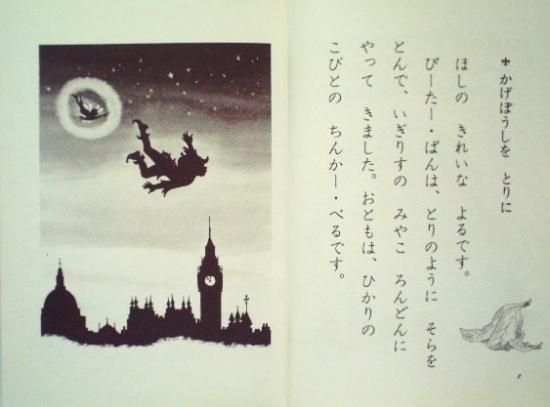 ＊かげぼうしを　とりに
ほしの　きれいな　よるです。
ぴーたー・ぱんは、とりのように　そらを
とんで、いぎりすの　みやこ　ろんどんに
やって　きました。おともは、ひかりの
こびとの　ちんかー・べるです。